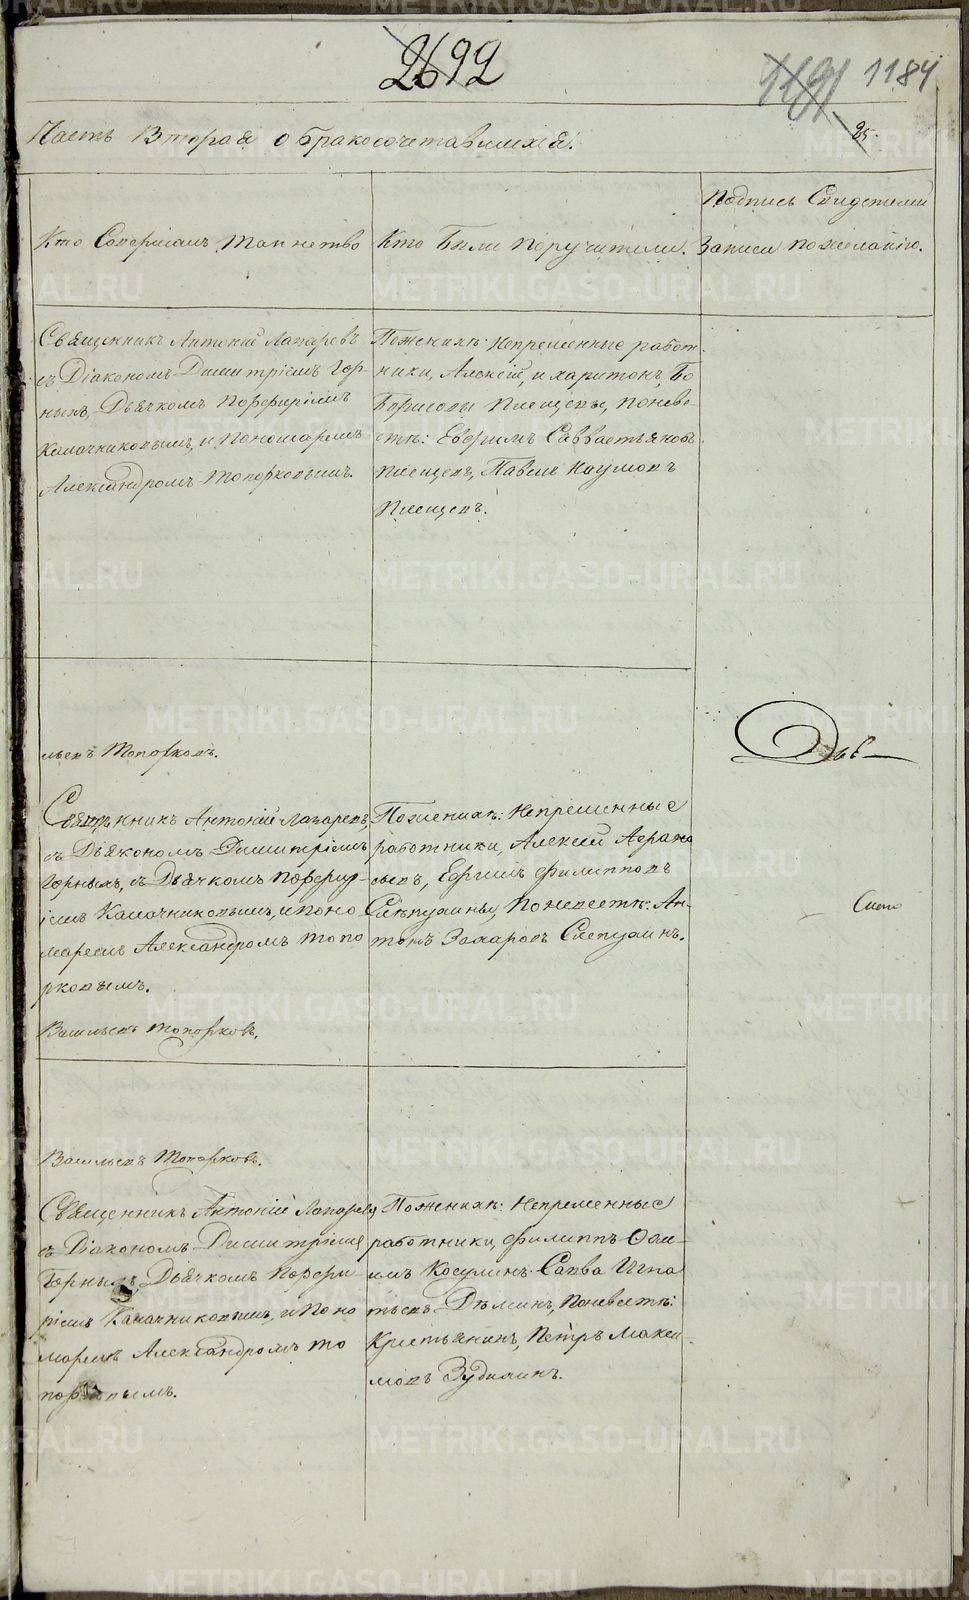 2692
1191 1184
Часть Вторая о бракосочетавшихся.
25.
Кто Совершалъ Таинство
Кто Были поручители.
Подпись Свидетелей
Записи по желанію.
Священникъ Антоній Лапаревъ
съ Діакономъ Димитріемъ Гор-
нымъ, Дьячкомъ Порфиріемъ
Калачниковымъ, и Пономаремъ
Александромъ Топорковымъ.
По женихѣ: Непременные работ-
ники, Алексій, и харитонъ, Бо
Борисовы Плещевы, по неве-
стѣ: Евфимъ Савватьяновъ
Плещевъ, Павелъ Наумовъ
Плещевъ.
льевъ Топорковъ.
Священникъ Антоній Лапаревъ,
съ Діякономъ Димитріемъ
Горнымъ, съ Дьячкомъ Порфир-
іемъ Калачниковымъ, и Поно
маремъ Александромъ Топо
рковымъ.
По женихѣ: Непременные
работники, Алексей Аврамо
Ефимъ Филипповъ
Слепухины, По невестѣ: Ан-
тонъ Захаровъ Слепухинъ.
Васильевъ Топорковъ.
Двѣ
Васильевъ Топорковъ.
Священникъ Антоній Лапаревъ
съ Діакономъ Димитріемъ
Горнымъ, Дьячкомъ Порфи
ріемъ Калачниковымъ, и Поно
маремъ Александромъ То
порковымъ.
По женихѣ: Непременные
работники, Филиппъ
Косулинъ Савва Игна
тьевъ Дѣминъ, По невестѣ:
Крестьянинъ, Петръ Макси
мовъ Зудихинъ.
METRIKI.GASO-URAL.RU